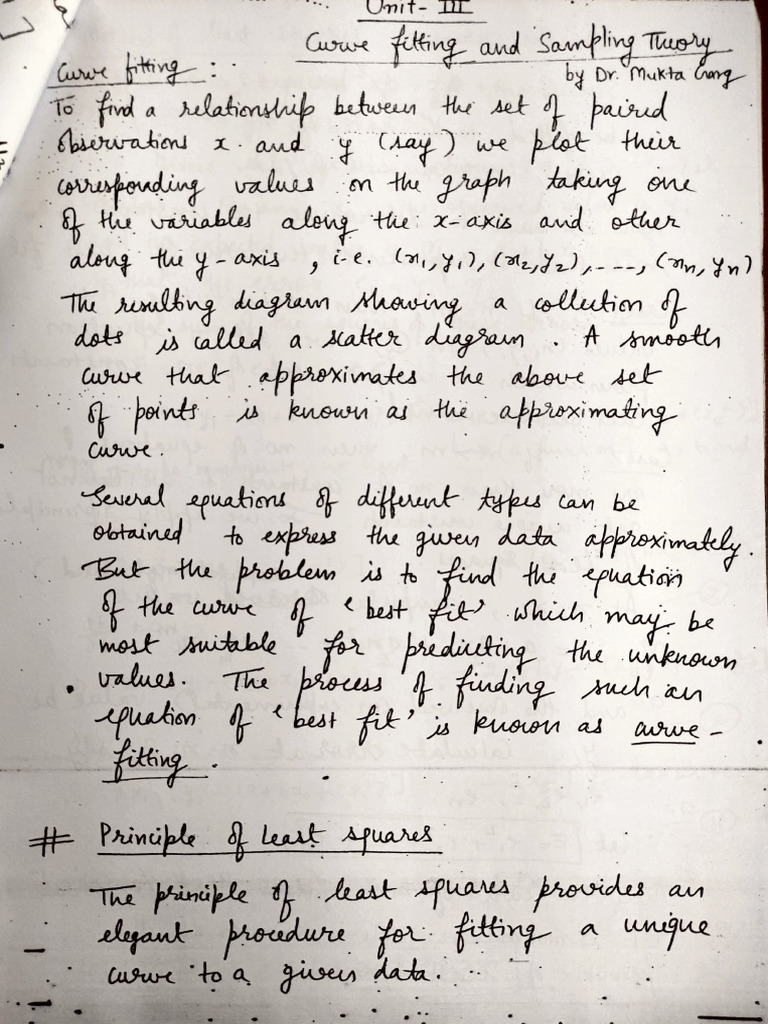 Unit - III
Curve fitting and Sampling Theory
by Dr. Mukta Garg
Curve fitting :
To find a relationship between the set of paired
observations x and y (say) we plot their
corresponding values on the graph taking one
of the variables along the x-axis and other
along the y-axis , i.e. (x1, y1), (x2, y2), ----, (xn, yn)
The resulting diagram showing a collection of
dots is called a scatter diagram . A smooth
curve that approximates the above set
of points is known as the approximating
curve.
Several equations of different types can be
obtained to express the given data approximately.
But the problem is to find the equation
of the curve of 'best fit' which may be
most suitable for predicting the unknown
values. The process of finding such an
equation of 'best fit' is known as curve-
fitting .
# Principle of Least squares
The principle of least squares provides an
elegant procedure for fitting a unique
curve to a given data.